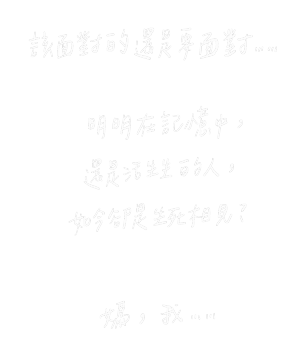 該面對的還是要面對……
明明在記憶中，
還是活生生的人，
如今卻是生死相見？
媽，我……